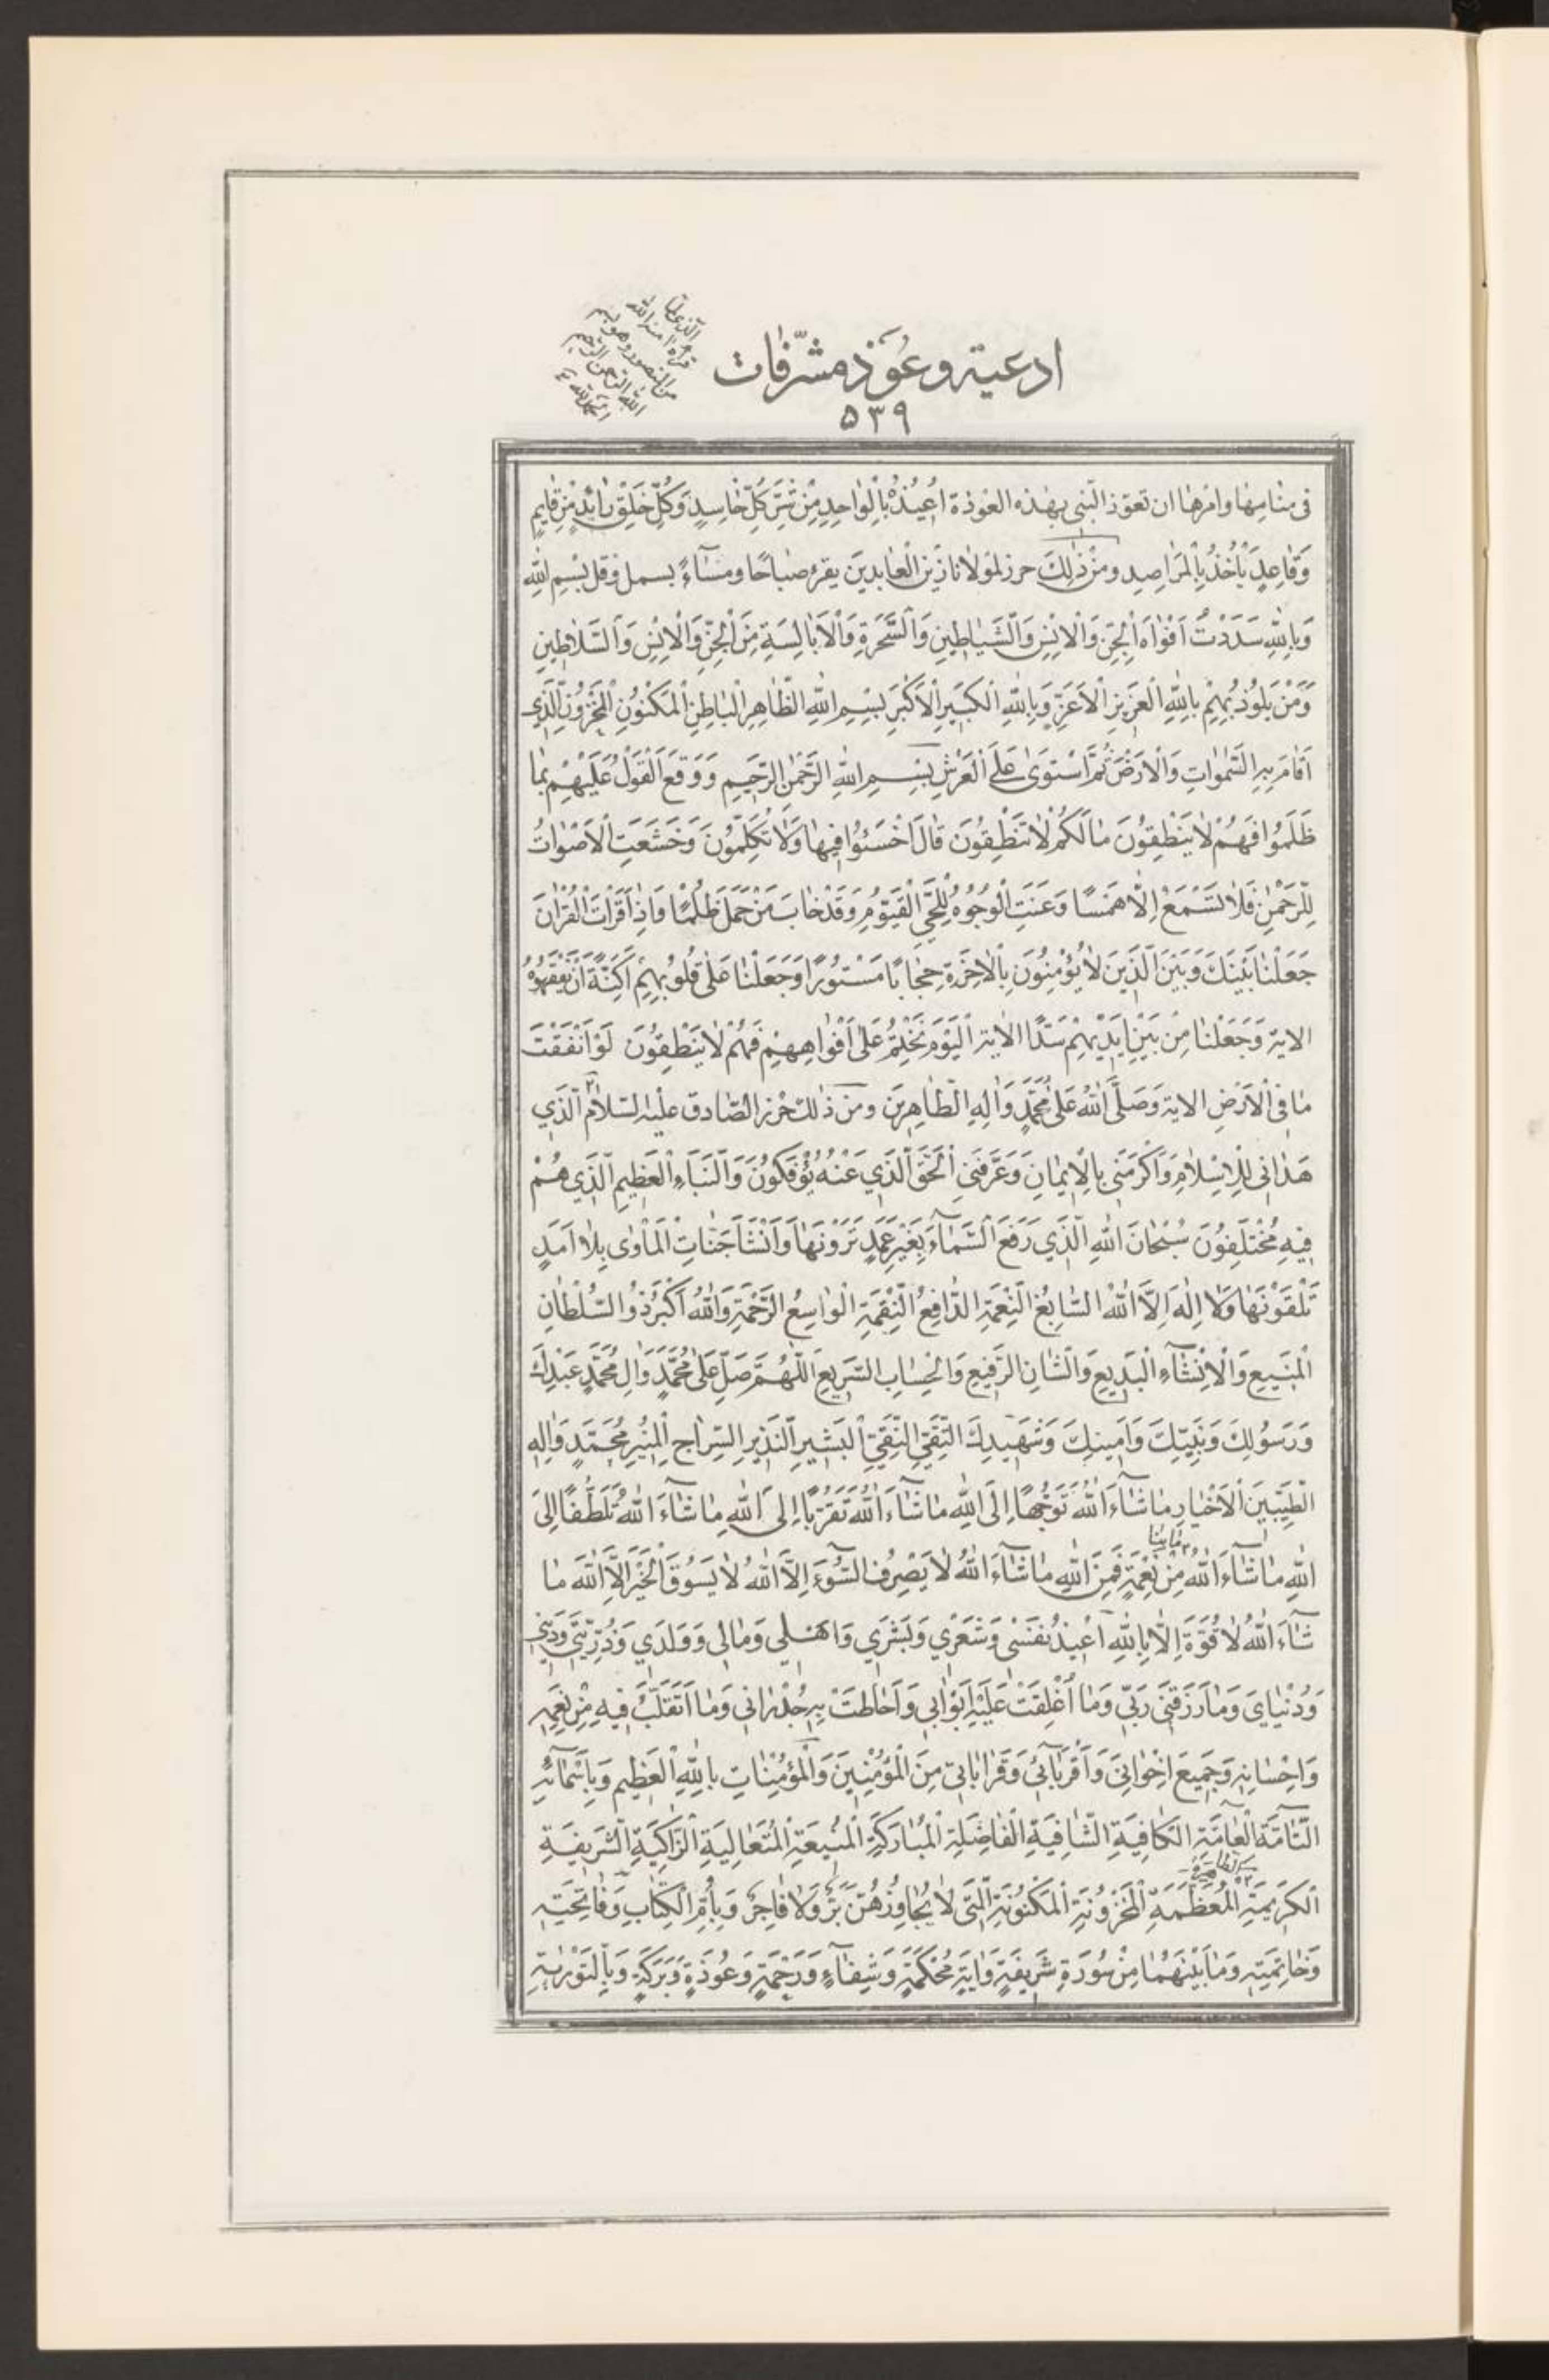 ادعية وعوذ مشرّفات
۵۳۹
الذى لما
قرأه امنه الله
من المنصور وهو بسم
الله الرحمن الرحيم
الحمد لله
فى منامها وامرها ان تعوّذ النّبى بهذه العوذة اُعِيذُهُ بِالْواحِدِ مِنْ شَرِّ كُلِّ حٰاسِدٍ وَكُلِّ خَلْقٍ رٰائِدٍ مِنْ قٰائِمٍ
وَقٰاعِدٍ يَأْخُذُ بِالْمَرٰاصِدِ ومن ذٰلِكَ حرز لمولانا زَيْن الْعٰابدين يقرء صباحًا ومسآءً بسمل وقل بِسْمِ اللّٰهِ
وَبِاللّٰهِ سَدَدْتُ اَفْوٰاهَ الْجِنِّ وَالْاِنْسِ وَالشَّيٰاطِينِ وَالسَّحَرَةِ وَالْاَبٰالِسَةِ مِنَ الْجِنِّ وَالْاِنْسِ وَالسَّلاٰطِينِ
وَمَنْ يَلُوذُ بِهِمْ بِاللّٰهِ الْعَزِيزِ الْاَعَزِّ وَبِاللّٰهِ الْكَبِيرِ الْاَكْبَرِ بِسْمِ اللّٰهِ الظّٰاهِرِ الْبٰاطِنِ الْمَكْنُونِ الْمَخْزُونِ الَّذِى
اَقٰامَ بِهِ السَّمٰوٰاتِ وَالْاَرْضَ ثُمَّ اسْتَوىٰ عَلَى الْعَرْشِ بِسْمِ اللّٰهِ الرَّحْمٰنِ الرَّحِيمِ وَوَقَعَ الْقَوْلُ عَلَيْهِمْ بِمٰا
ظَلَمُوا فَهُمْ لاٰ يَنْطِقُونَ مٰا لَكُمْ لاٰ تَنْطِقُونَ قٰالَ اخْسَئُوا فِيهٰا وَلاٰ تُكَلِّمُونَ وَخَشَعَتِ الْاَصْوٰاتُ
لِلرَّحْمٰنِ فَلاٰ تَسْمَعُ اِلّاٰ هَمْسًا وَعَنَتِ الْوُجُوهُ لِلْحَيِّ الْقَيُّومِ وَقَدْ خٰابَ مَنْ حَمَلَ ظُلْمًا وَاِذٰا قَرَأْتَ الْقُرْاٰنَ
جَعَلْنٰا بَيْنَكَ وَبَيْنَ الَّذِينَ لاٰ يُؤْمِنُونَ بِالْاٰخِرَةِ حِجٰابًا مَسْتُورًا وَجَعَلْنٰا عَلىٰ قُلُوبِهِمْ اَكِنَّةً اَنْ يَفْقَهُوهُ
الاية وَجَعَلْنٰا مِنْ بَيْنِ اَيْدِيهِمْ سَدًّا الاية اَلْيَوْمَ نَخْتِمُ عَلىٰ اَفْوٰاهِهِمْ فَهُمْ لاٰ يَنْطِقُونَ لَوْ اَنْفَقْتَ
مٰا فِى الْاَرْضِ الاية وَصَلَّى اللّٰهُ عَلىٰ مُحَمَّدٍ وَاٰلِهِ الطّٰاهِرِينَ ومن ذٰلك حرز الصّادق عليه السّلام الَّذِي
هَدٰانِى لِلْاِسْلاٰمِ وَاَكْرَمَنِى بِالْاِيمٰانِ وَعَرَّفَنِيَ الْحَقَّ الَّذِي عَنْهُ يُؤْفَكُونَ وَالنَّبَاءِ الْعَظِيمِ الَّذِي هُمْ
فِيهِ مُخْتَلِفُونَ سُبْحٰانَ اللّٰهِ الَّذِي رَفَعَ السَّمٰآءَ بِغَيْرِ عَمَدٍ تَرَوْنَهٰا وَاَنْشَاَ جَنّٰاتِ الْمَأْوٰى بِلاٰ اَمَدٍ
تَلْقَوْنَهٰا وَلاٰ اِلٰهَ اِلاَّ اللّٰهُ السّٰابِغُ النِّعْمَةِ الدّٰافِعُ النِّقْمَةِ الْوٰاسِعُ الرَّحْمَةِ وَاللّٰهُ اَكْبَرُ ذُو السُّلْطٰانِ
الْمَنِيعِ وَالْاِنْشٰآءِ الْبَدِيعِ وَالشّٰانِ الرَّفِيعِ وَالْحِسٰابِ السَّرِيعِ اَللّٰهُمَّ صَلِّ عَلىٰ مُحَمَّدٍ وَاٰلِ مُحَمَّدٍ عَبْدِكَ
وَرَسُولِكَ وَنَبِيِّكَ وَاَمِينِكَ وَشَهِيدِكَ التَّقِيِّ النَّقِيِّ الْبَشِيرِ النَّذِيرِ السِّرٰاجِ الْمُنِيرِ مُحَمَّدٍ وَاٰلِهِ
الطَّيِّبِينَ الْاَخْيٰارِ مٰا شٰآءَ اللّٰهُ تَوَجُّهًا اِلَى اللّٰهِ مٰا شٰآءَ اللّٰهُ تَقَرُّبًا اِلَى اللّٰهِ مٰا شٰآءَ اللّٰهُ تَلَطُّفًا اِلَى
اللّٰهِ مٰا شٰآءَ اللّٰهُ مِنْ نِعْمَةٍ فَمِنَ اللّٰهِ مٰا شٰآءَ اللّٰهُ لاٰ يَصْرِفُ السُّوٓءَ اِلاَّ اللّٰهُ لاٰ يَسُوقُ الْخَيْرَ اِلاَّ اللّٰهُ مٰا
شٰآءَ اللّٰهُ لاٰ قُوَّةَ اِلّاٰ بِاللّٰهِ اُعِيذُ نَفْسِى وَشَعْرِي وَبَشَرِي وَاَهْلِي وَمٰالِى وَوَلَدِي وَذُرِّيَّتِي وَدِينِى
وَدُنْيٰايَ وَمٰا رَزَقَنِى رَبِّي وَمٰا اُغْلِقَتْ عَلَيْهِ اَبْوٰابِي وَاَحٰاطَتْ بِهِ جُدْرٰانِى وَمٰا اَتَقَلَّبُ فِيهِ مِنْ نِعَمِهِ
وَاِحْسٰانِهِ وَجَمِيعَ اِخْوٰانِى وَاَقْرِبٰآئِى وَقَرٰابٰاتِى مِنَ الْمُؤْمِنِينَ وَالْمُؤْمِنٰاتِ بِاللّٰهِ الْعَظِيمِ وَبِاَسْمٰآئِهِ
التّٰآمَّةِ الْعٰامَّةِ الْكٰافِيَةِ الشّٰافِيَةِ الْفٰاضِلَةِ الْمُبٰارَكَةِ الْمَنِيعَةِ الْمُتَعٰالِيَةِ الزّٰاكِيَةِ الشَّرِيفَةِ
الْكَرِيمَةِ الْمُعَظَّمَةِ الْمَخْزُونَةِ الْمَكْنُونَةِ الَّتِى لاٰ يُجٰاوِزُهُنَّ بَرٌّ وَلاٰ فٰاجِرٌ وَبِاُمِّ الْكِتٰابِ وَفٰاتِحَتِهِ
وَخٰاتِمَتِهِ وَمٰا بَيْنَهُمٰا مِنْ سُورَةٍ شَرِيفَةٍ وَاٰيَةٍ مُحْكَمَةٍ وَشِفٰآءٍ وَرَحْمَةٍ وَعُوذَةٍ وَبَرَكَةٍ وَبِالتَّوْرٰيةِ